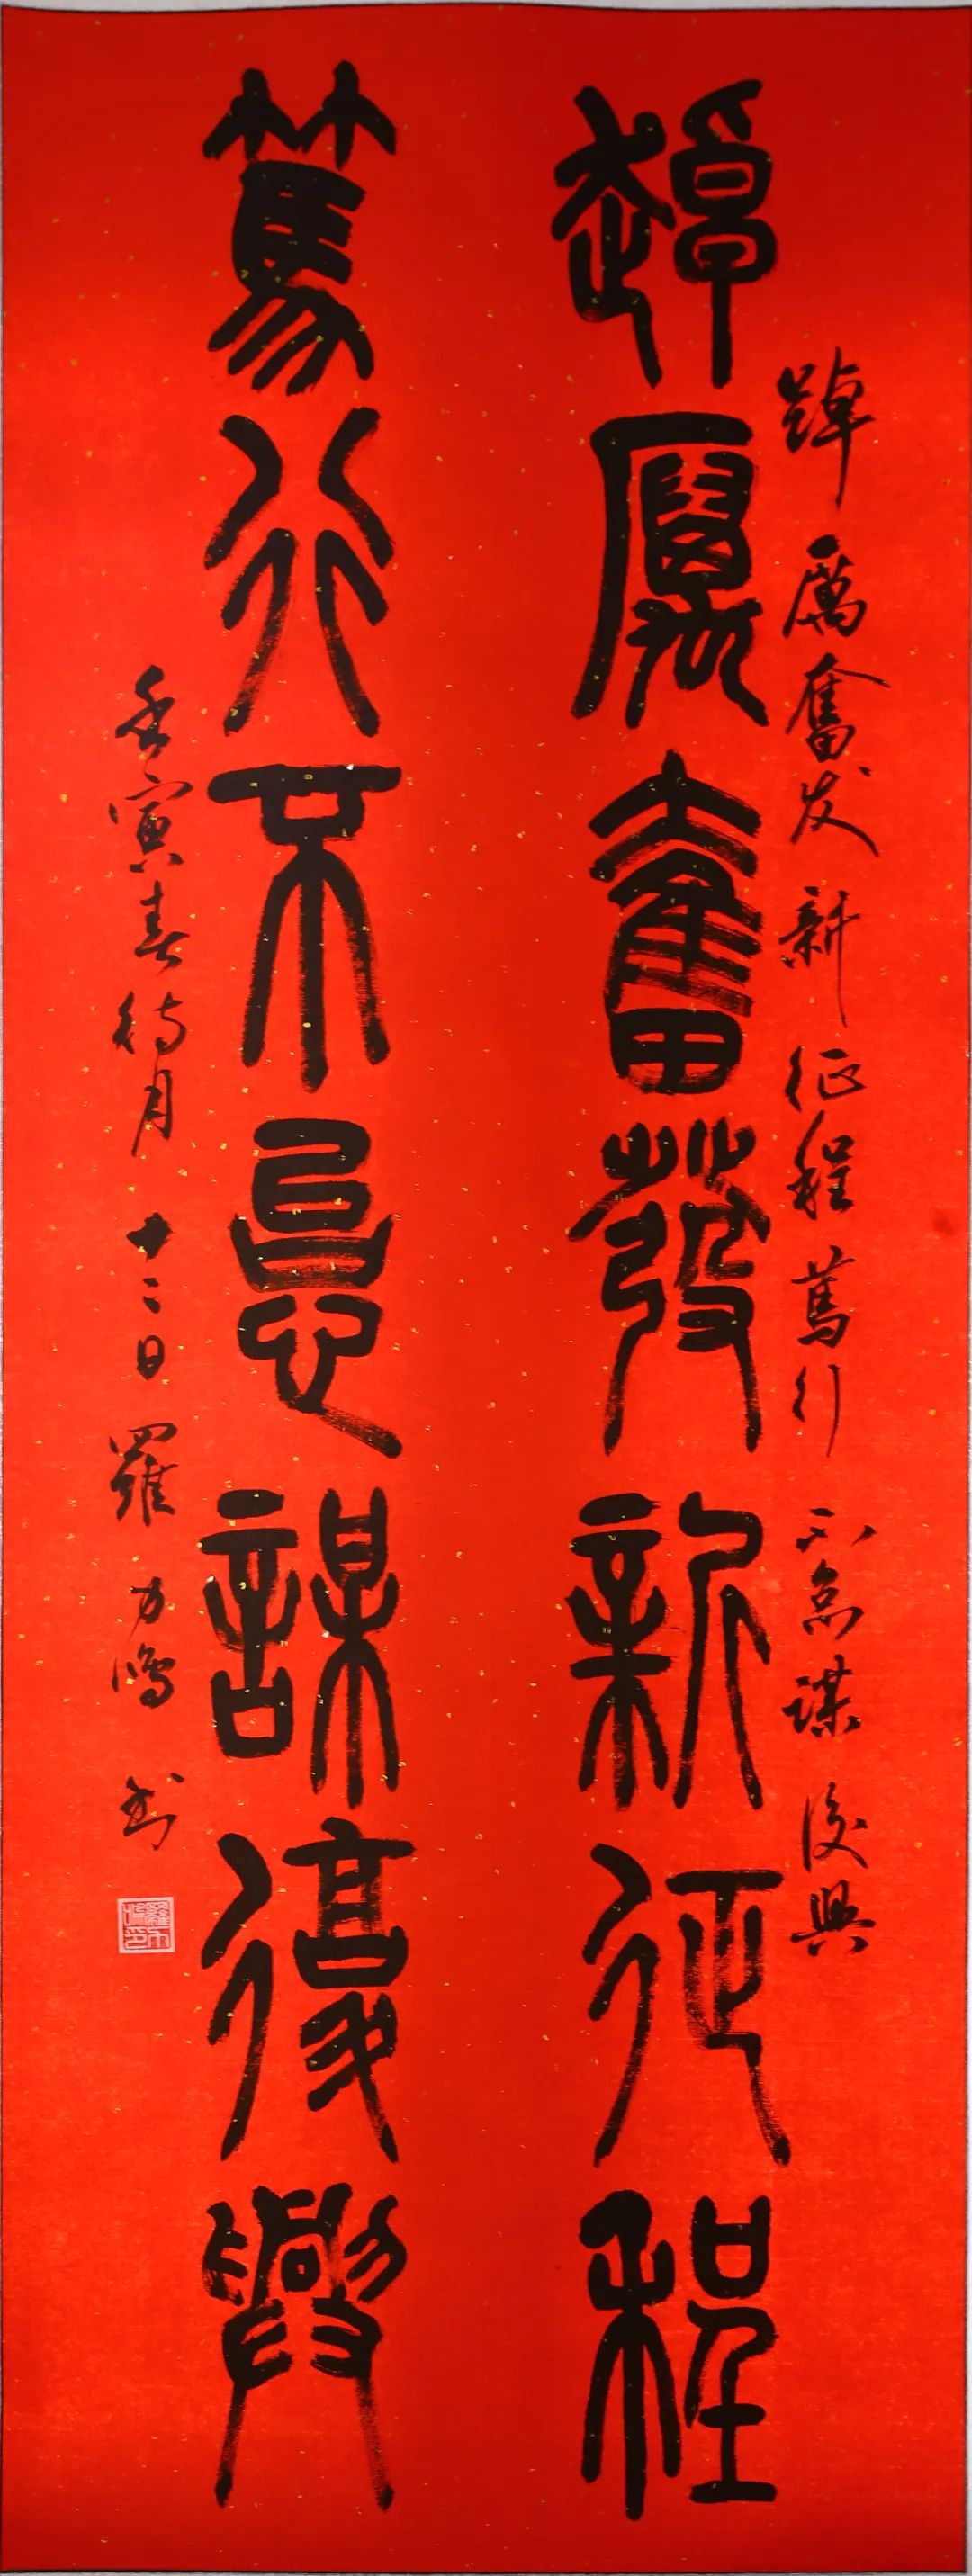 踔厲奮发新征程篤行不怠謀復興
踔厲奮發新征程
篤行不怠謀復興
壬寅春待月十二日羅力鳴书